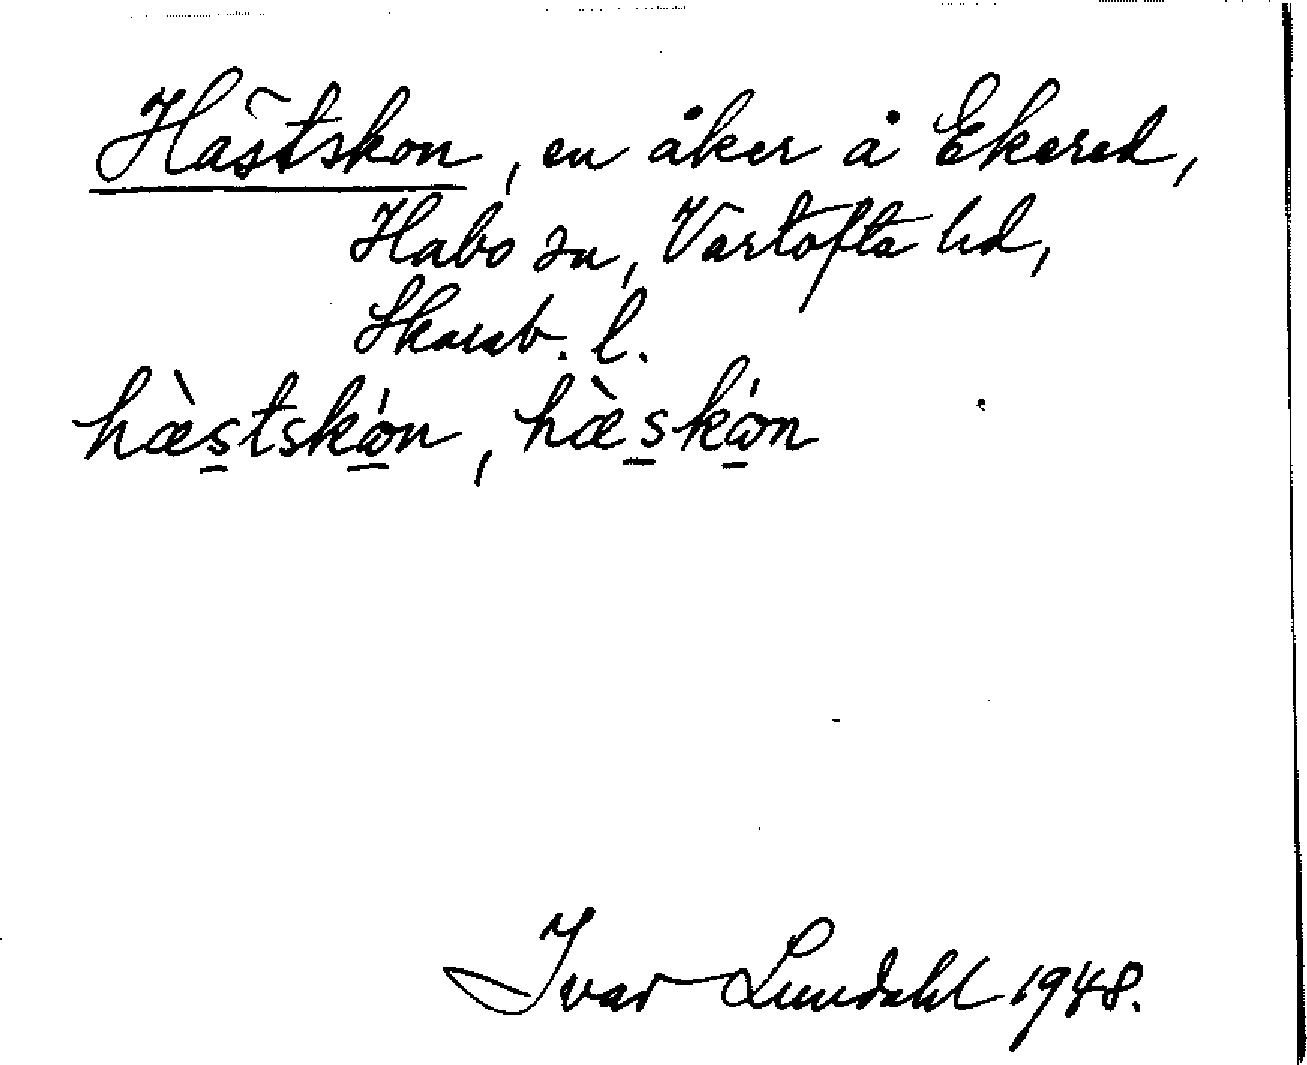 Hästskon, en åker å Ekered,
Habo sn, Vartofta hd,
Skarab. l.
hæ̀stskών, hæ̀skών
Ivar Lundahl 1948.